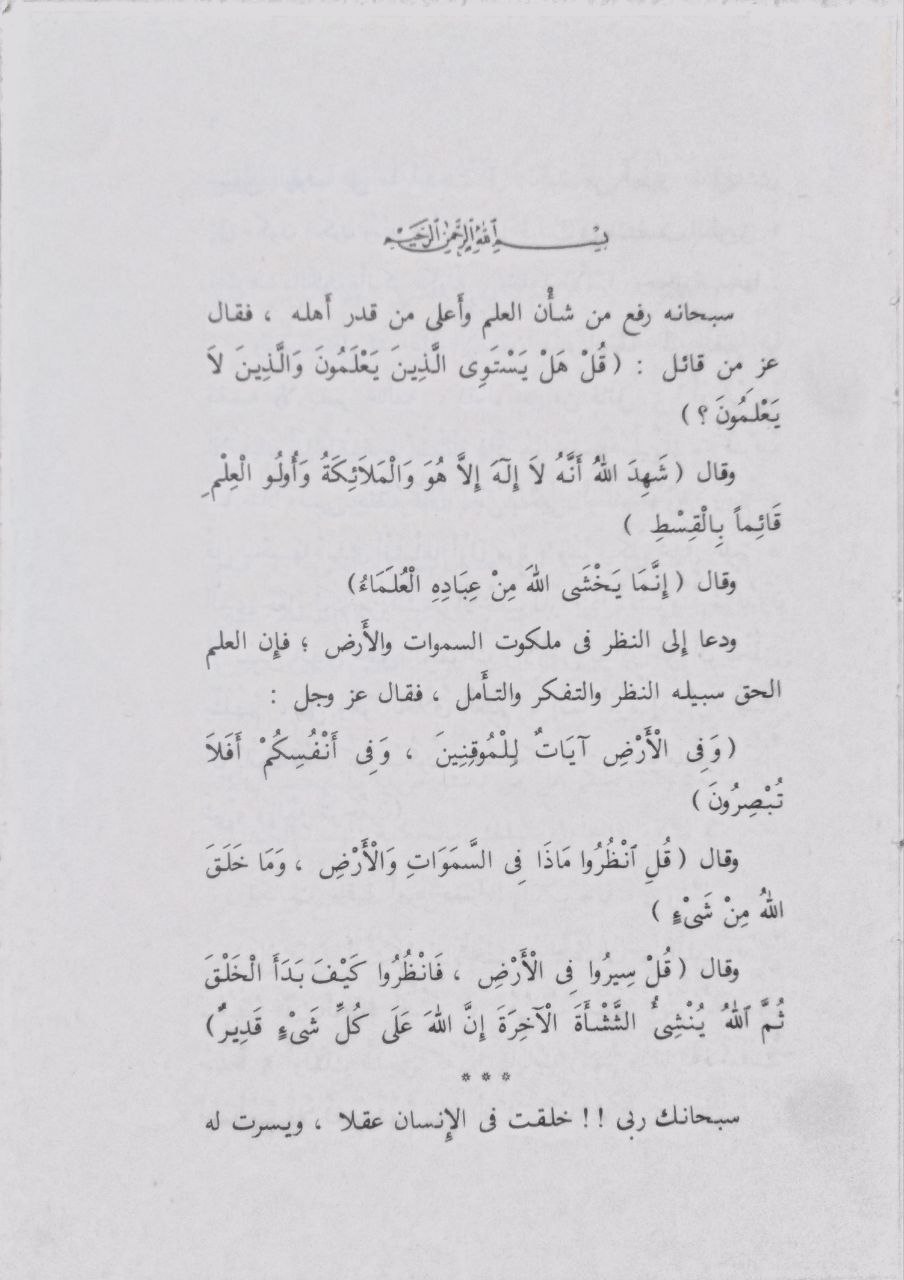 بِسْمِ اللهِ الرَّحْمٰنِ الرَّحِيْمِ
سبحانه رفع من شأْن العلم وأَعلى من قدر أَهله ، فقال
عز من قائل : (قُلْ هَلْ يَسْتَوِى الَّذِينَ يَعْلَمُونَ وَالَّذِينَ لاَ
يَعْلَمُونَ ؟ )
وقال ( شَهِدَ اللهُ أَنَّهُ لاَ إِلَهَ إِلاَّ هُوَ وَالْمَلاَئِكَةُ وَأُولُو الْعِلْمِ
قَائِماً بِالْقِسْطِ )
وقال ( إِنَّمَا يَخْشَى اللهَ مِنْ عِبَادِهِ الْعُلَمَاءُ)
ودعا إِلى النظر فى ملكوت السموات والأَرض ؛ فإِن العلم
الحق سبيله النظر والتفكر والتأَمل ، فقال عز وجل :
( وَفِى الْأَرْضِ آيَاتٌ لِلْمُوقِنِينَ ، وَفِى أَنْفُسِكُمْ أَفَلاَ
تُبْصِرُونَ )
وقال ( قُلِ ٱنْظُرُوا مَاذَا فِى السَّمَوَاتِ وَالْأَرْضِ ، وَمَا خَلَقَ
اللهُ مِنْ شَىْءٍ )
وقال ( قُلْ سِيرُوا فِى الْأَرْضِ ، فَانْظُرُوا كَيْفَ بَدَأَ الْخَلْقَ
ثُمَّ ٱللهُ يُنْشِىُٔ النَّشْأَةَ الْآخِرَةَ إِنَّ اللهَ عَلَى كُلِّ شَىْءٍ قَدِيرٌ)
* * *
سبحانك ربى !! خلقت فى الإِنسان عقلا ، ويسرت له